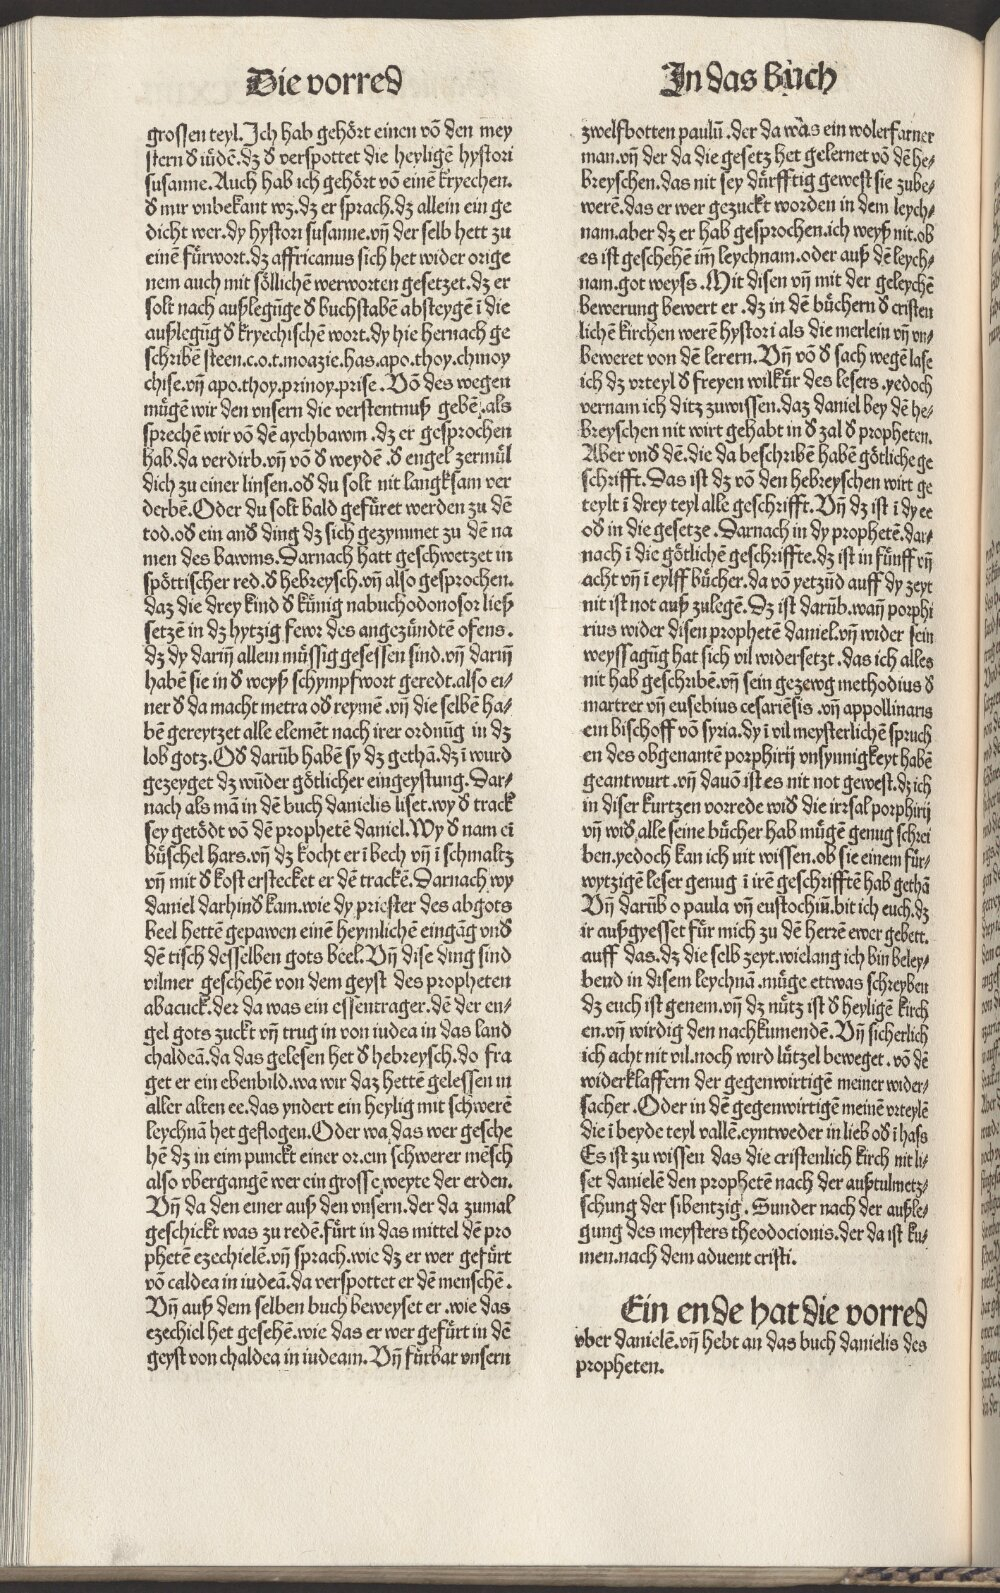 Die vorred
In das Bůch
grossen teyl. Ich hab gehört einen võ den mey
stern ď iüdẽ.dz ď verspottet die heyligẽ hystori
susanne. Auch hab ich gehört võ einẽ kryechen.
ď mir vnbekant wz.dz er sprach.dz allein ein ge
dicht wer.dy hystori susanne.vñ der selb hett zu
einẽ fürwort.dz affricanus sich het wider orige
nem auch mit söllichẽ werworten gesetzet.dz er
solt nach außlegũge ď buchstabẽ absteygẽ ĩ die
außlegũg ď kryechischẽ wort.dy hie hernach ge
schribẽ steen.c.o.t.moazie.has.apo.thoy.chinoy
chise.vñ apo.thoy.prinoy.prise. Võ des wegen
mügẽ wir den vnsern die verstentnuß gebẽ.als
sprechẽ wir võ dẽ aychbawm .dz er gesprochen
hab.da verdirb.vñ võ ď weydẽ .ď engel zermül
dich zu einer linsen.oď du solt nit langksam ver
derbẽ.Oder du solt bald gefüret werden zu dẽ
tod.oď ein anď ding dz sich gezymmet zu dẽ na
men des bawms.Darnach hatt geschwetzet in
spöttischer red.ď hebreysch.vñ also gesprochen.
daz die drey kind ď künig nabuchodonosor ließ
setzẽ in dz hytzig fewr des angezündtẽ ofens.
dz dy dariñ allein müssig gesessen sind.vñ dariñ
habẽ sie in ď weyß schympfwort geredt.also ei⸗
ner ď da macht metra oď reymẽ .vñ die selbẽ ha⸗
bẽ gereytzet alle elemẽt nach irer ordnũg in dz
lob gotz.Oď darũb habẽ sy dz gethã.dz ĩ wurd
gezeyget dz wũder götlicher eingeystung.Dar⸗
nach als mã in dẽ buch danielis liset.wy ď track
sey getödt võ dẽ prophetẽ daniel.Wy ď nam ei
büschel hars.vñ dz kocht er ĩ bech vñ ĩ schmaltz
vñ mit ď kost erstecket er dẽ trackẽ.Darnach wy
daniel darhinď kam.wie dy priester des abgots
beel hettẽ gepawen einẽ heymlichẽ eingãg vnď
dẽ tisch desselben gots beel.Vñ dise ding sind
vilmer geschehẽ von dem geyst des propheten
abacuck.der da was ein essentrager.dẽ der en⸗
gel gots zuckt vñ trug in von iudea in das land
chaldeã.da das gelesen het ď hebreysch.do fra
get er ein ebenbild.wa wir daz hettẽ gelessen in
aller alten ee.das yndert ein heylig mit schwerẽ
leychnã het geflogen.Oder wa das wer gesche
hẽ dz in eim punckt einer or.ein schwerer mẽsch
also vbergangẽ wer ein grosse weyte der erden.
Vñ da den einer auß den vnsern.der da zumal
geschickt was zu redẽ.fürt in das mittel dẽ pro
phetẽ ezechielẽ.vñ sprach.wie dz er wer gefürt
võ caldea in iudeã.da verspottet er dẽ menschẽ.
Vñ auß dem selben buch beweyset er .wie das
ezechiel het gesehẽ.wie das er wer gefürt in dẽ
geyst von chaldea in iudeam.Vñ fürbar vnsern
zwelfbotten paulũ .der da was ein wolerfarner
man.vñ der da die gesetz het gelernet võ dẽ he⸗
breyschen.das nit sey dürfftig gewest sie zube⸗
werẽ.das er wer gezuckt worden in dem leych⸗
nam.aber dz er hab gesprochen.ich weyß nit.ob
es ist geschehẽ im̃ leychnam.oder auß dẽ leych⸗
nam.got weyss .Mit disen vñ mit der geleychẽ
bewerung bewert er .dz in dẽ büchern ď cristen
lichẽ kirchen werẽ hystori als die merlein vñ vn⸗
beweret von dẽ lerern.Vñ võ ď sach wegẽ lase
ich dz vrteyl ď freyen wilkür des lesers .yedoch
vernam ich ditz zuwissen.daz daniel bey dẽ he⸗
breyschen nit wirt gehabt in ď zal ď propheten.
Aber vnď dẽ.die da beschribẽ habẽ götliche ge
schrifft.Das ist dz võ den hebreyschen wirt ge
teylt ĩ drey teyl alle geschrifft.Vñ dz ist ĩ dy ee
oď in die gesetze .Darnach in dy prophetẽ.dar⸗
nach ĩ die götlichẽ geschriffte.dz ist in fünff vñ
acht vñ ĩ eylff bücher.da võ yetzũd auff dy zeyt
nit ist not auß zulegẽ.Dz ist darũb.wañ porphi
rius wider disen prophetẽ daniel.vñ wider sein
weyssagũg hat sich vil widersetzt .das ich alles
nit hab geschribẽ.vñ sein gezewg methodius ď
martrer vñ eusebius cesariẽsis .vñ appollinaris
ein bischoff võ syria.dy ĩ vil meysterlichẽ spruch
en des obgenantẽ porphirij vnsynnigkeyt habẽ
geantwurt .vñ dauõ ist es nit not gewest.dz ich
in diser kurtzen vorrede wiď die irrsal porphirij
vñ wiď alle seine bücher hab mügẽ genug schrei
ben.yedoch kan ich nit wissen.ob sie einem für⸗
wytzigẽ leser genug ĩ irẽ geschrifftẽ hab gethã
Vñ darũb o paula vñ eustochiũ.bit ich euch.dz
ir außgyesset für mich zu dẽ herrẽ ewer gebett.
auff das.dz die selb zeyt.wielang ich bin beley⸗
bend in disem leychnã .müge ettwas schreyben
dz euch ist genem.vñ dz nütz ist ď heyligẽ kirch
en.vñ wirdig den nachkumendẽ.Vñ sicherlich
ich acht nit vil.noch wird lützel beweget .võ dẽ
widerklaffern der gegenwirtigẽ meiner wider⸗
sacher .Oder in dẽ gegenwirtigẽ meinẽ vrteylẽ
die ĩ beyde teyl vallẽ.eyntweder in lieb oď ĩ hass
Es ist zu wissen das die cristenlich kirch nit li⸗
set danielẽ den prophetẽ nach der außtulmetz⸗
schung der sibentzig. Sunder nach der außle⸗
gung des meysters theodocionis.der da ist ku⸗
men.nach dem aduent cristi.
Ein ende hat die vorred
vber danielẽ.vñ hebt an das buch danielis des
propheten.